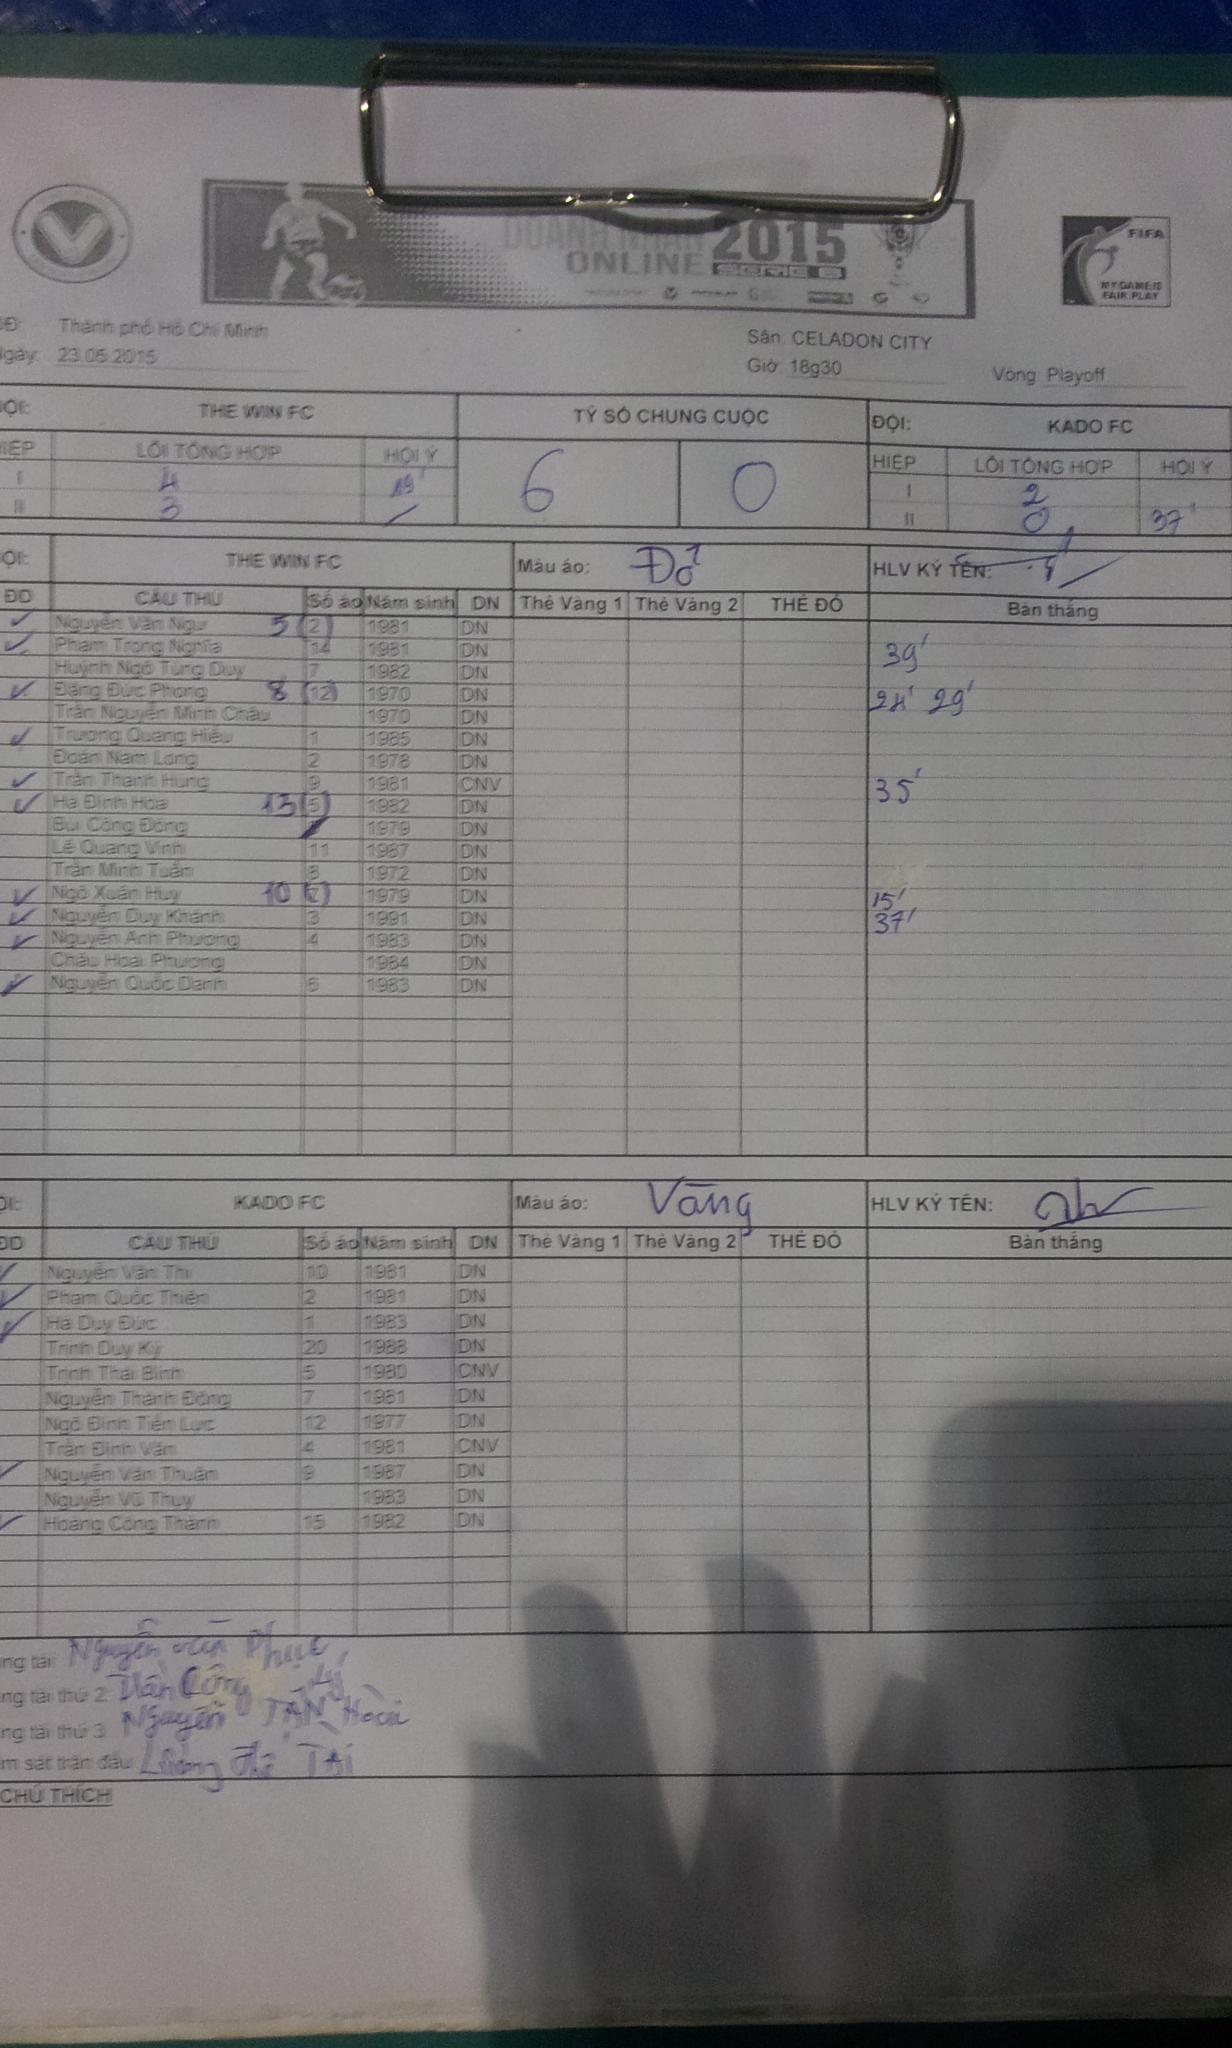 DOANH NHÂN 2015
ONLINE SERIE B
FIFA
MY GAME IS
FAIR PLAY
Đ: Thành phố Hồ Chí Minh
Sân: CELADON CITY
gày: 23.05.2015
Giờ: 18g30
Vòng: Playoff
ỘI: THE WIN FC TỶ SỐ CHUNG CUỘC ĐỘI: KADO FC
HIỆP LỖI TỔNG HỢP HỘI Ý 6 0 HIỆP LỖI TỔNG HỢP HỘI Ý
I 4 19' I 2
II 3 / II 0 37'
ỘI: THE WIN FC Màu áo: Đỏ HLV KÝ TÊN:
ĐD CẦU THỦ Số áo Năm sinh DN Thẻ Vàng 1 Thẻ Vàng 2 THẺ ĐỎ Bàn thắng
Nguyễn Văn Ngư 5 (2) 1981 DN
Phạm Trọng Nghĩa 14 1981 DN 39'
Huỳnh Ngô Tùng Duy 7 1982 DN
Đặng Đức Phong 8 (12) 1970 DN 24' 29'
Trần Nguyễn Minh Châu 1970 DN
Trương Quang Hiếu 1 1985 DN
Đoàn Nam Long 2 1978 DN
Trần Thanh Hùng 9 1981 CNV 35'
Hà Đình Hoa 13 (5) 1982 DN
Bùi Công Đồng 1979 DN
Lê Quang Vinh 11 1987 DN
Trần Minh Tuấn 8 1972 DN
Ngô Xuân Huy 10 1979 DN 15'
Nguyễn Duy Khánh 3 1991 DN 37'
Nguyễn Anh Phương 4 1983 DN
Châu Hoài Phương 1984 DN
Nguyễn Quốc Danh 6 1983 DN
ỘI: KADO FC Màu áo: Vàng HLV KÝ TÊN:
ĐD CẦU THỦ Số áo Năm sinh DN Thẻ Vàng 1 Thẻ Vàng 2 THẺ ĐỎ Bàn thắng
Nguyễn Văn Thi 10 1981 DN
Phạm Quốc Thiên 2 1981 DN
Hà Duy Đức 1 1983 DN
Trịnh Duy Kỳ 20 1988 DN
Trịnh Thái Bình 5 1980 CNV
Nguyễn Thành Đông 7 1981 DN
Ngô Đình Tiến Lực 12 1977 DN
Trần Đình Văn 4 1981 CNV
Nguyễn Văn Thuân 9 1987 DN
Nguyễn Vũ Thuy 1983 DN
Hoàng Công Thành 15 1982 DN
ng tài: Nguyễn Văn Phục
ng tài thứ 2: Trần Công Lý
ng tài thứ 3: Nguyễn TẤN Hoài
m sát trận đấu: Lương Thế Tài
CHÚ THÍCH